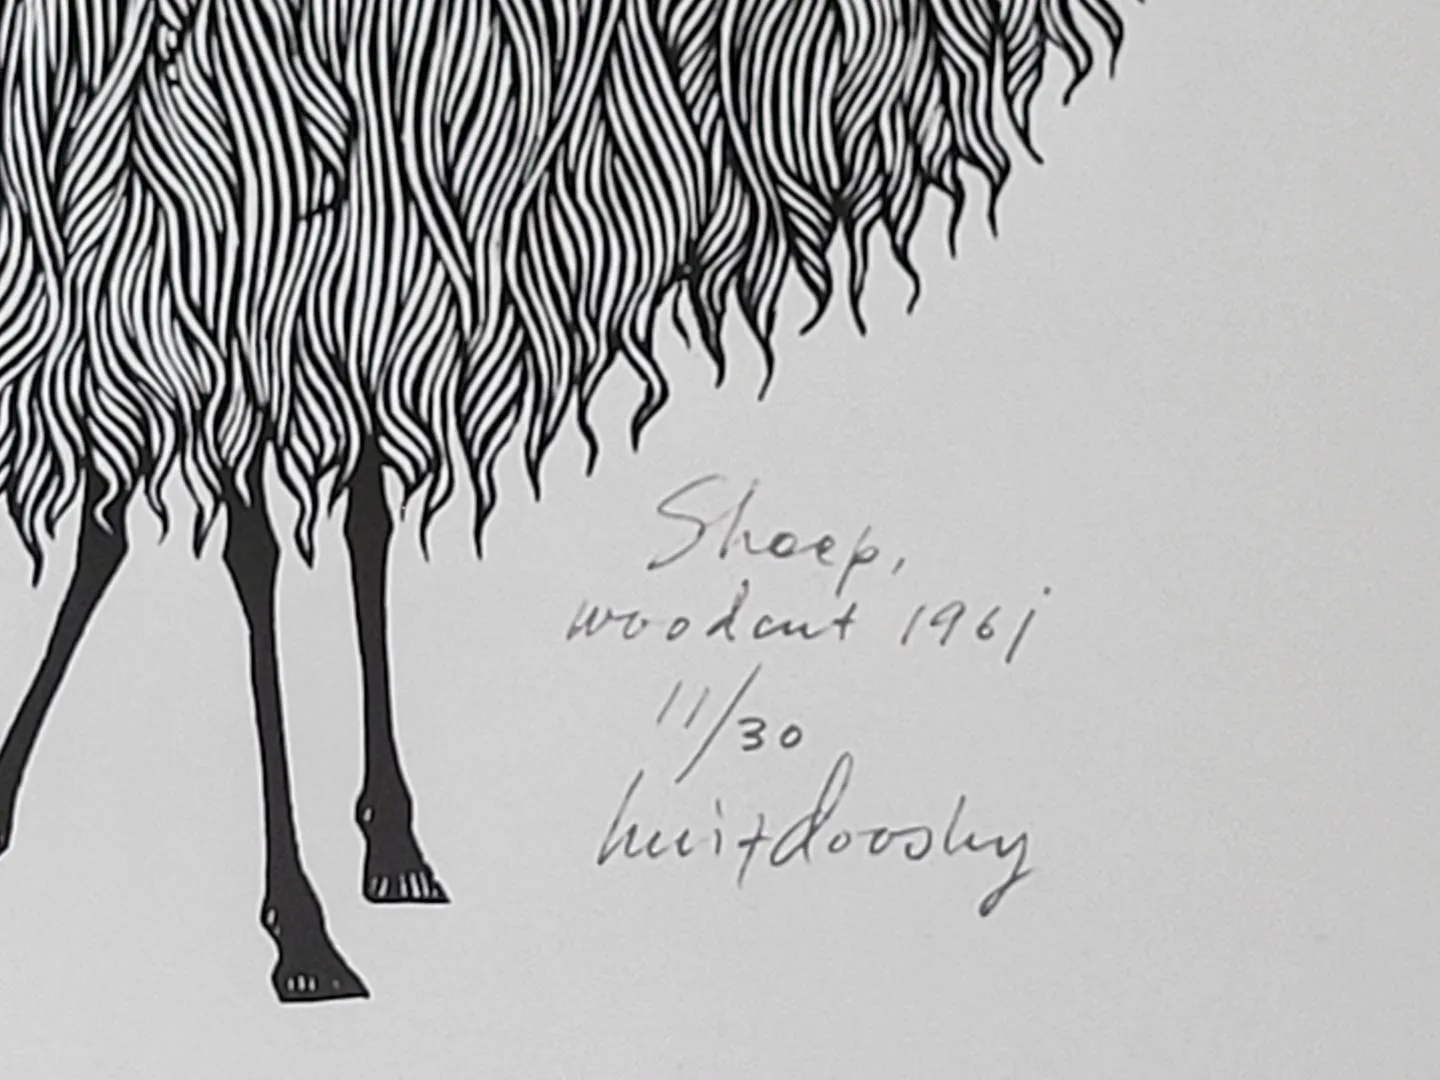 Sheep,
woodcut 1961
11/30
hnizdovsky